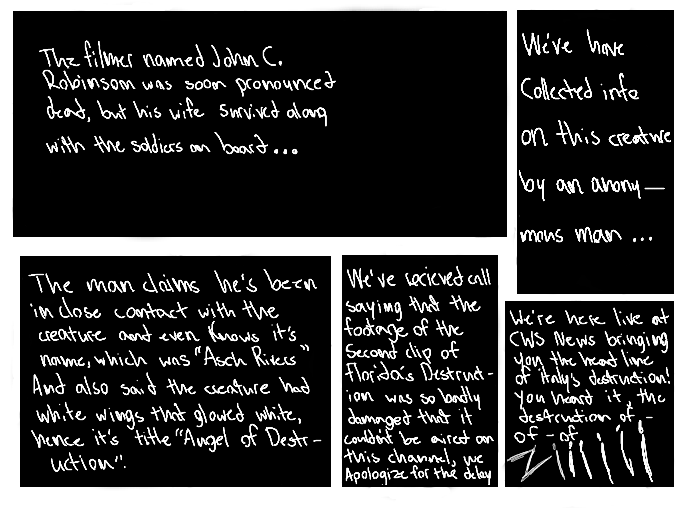 The filmer named John C.
Robinson was soon pronounced
dead, but his wife survived along
with the soldiers on board...
We've have
Collected info
on this creature
by an anony-
mous man...
The man claims he's been
in close contact with the
creature and even knows it's
name, which was "Asch Rivers"
And also said the creature had
white wings that glowed white,
hence it's title "Angel of Destr-
uction".
We've recieved call
saying that the
footage of the
Second clip of
Florida's Destruct-
ion was so badly
damaged that it
couldn't be aired on
this channel, we
Apologize for the delay
We're here live at
CWS News bringing
you the head line
of italy's destruction!
You heard it, the
destruction of -
of - of